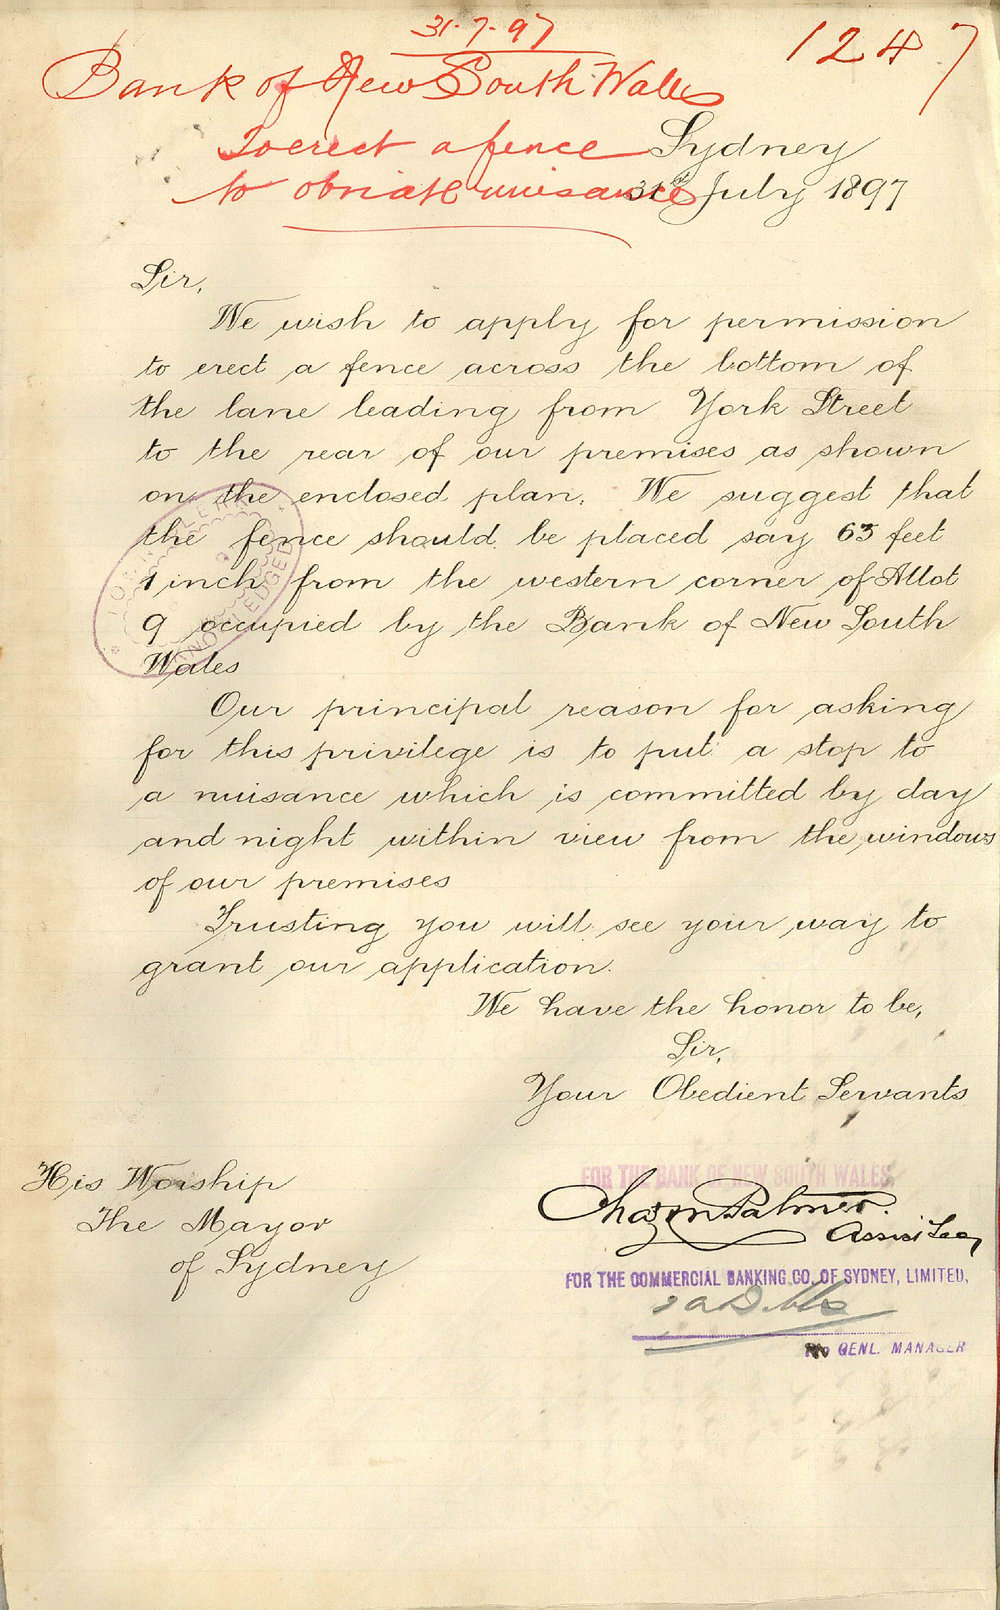 31.7.97
1247
Bank of New South Wales
To erect a fence
to obviate nuisance
Sydney
31st July 1897
Sir,
We wish to apply for permission
to erect a fence across the bottom of
the lane leading from York Street
to the rear of our premises as shown
on the enclosed plan. We suggest that
the fence should be placed say 63 feet
1 inch from the western corner of Allot
9 occupied by the Bank of New South
Wales
Our principal reason for asking
for this privilege is to put a stop to
a nuisance which is committed by day
and night within view from the windows
of our premises
Trusting you will see your way to
grant our application.
We have the honor to be,
Sir,
Your Obedient Servants
His Worship
The Mayor
of Sydney
FOR THE BANK OF NEW SOUTH WALES
Chas M Palmer.
Assist Sec,
FOR THE COMMERCIAL BANKING CO. OF SYDNEY, LIMITED,
GENL. MANAGER